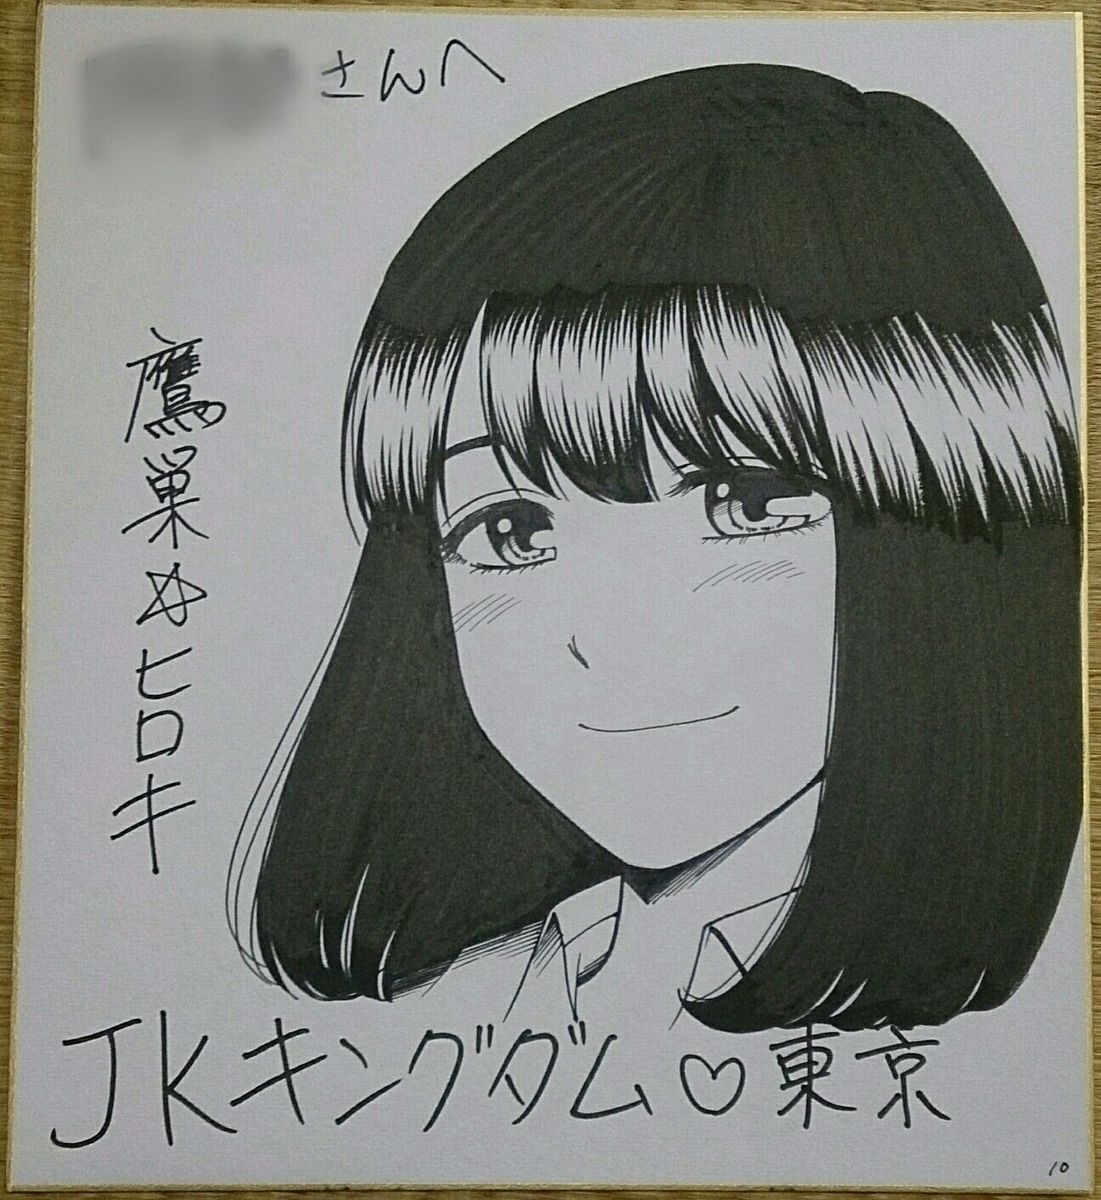 さんへ
鷹巣☆ヒロキ
JKキングダム♡東京
10